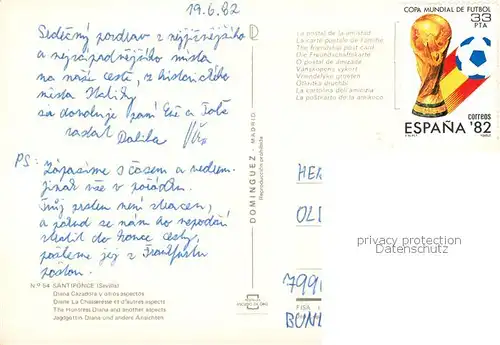 19.6.82
Srdečný pozdrav z nejjižnějšího
a nejzápadnějšího místa
na naší cestě, z historického
místa Italiky
PS: Zápasíme s časem a vedrem.
jinak vše v pořádku.
Tvůj prsten není ztracen,
a pokud se nám ho nepodaří
ztratit do konce cesty,
pošleme jej z Frankfurtu
poštou.
N.º 54 SANTIPONCE (Sevilla)
Diana Cazadora y otros aspectos
Diane La Chasseresse et d'autres aspects
The Huntress Diana and another aspects
Jagdgöttin Diana und andere Ansichten
DOMINGUEZ - MADRID
Reproducción prohibida
La postal de la amistad
La carte postale de l'amitié
The friendship post card
Die Freundschaftskarte
O postal de amizade
Vänskapens vykort
Vriendelijke groeten
La cartolina dell'amicizia
COPA MUNDIAL DE FUTBOL
33
PTA
correos
ESPAÑA '82
HER
OLD
7991
BUN
privacy protection
Datenschutz